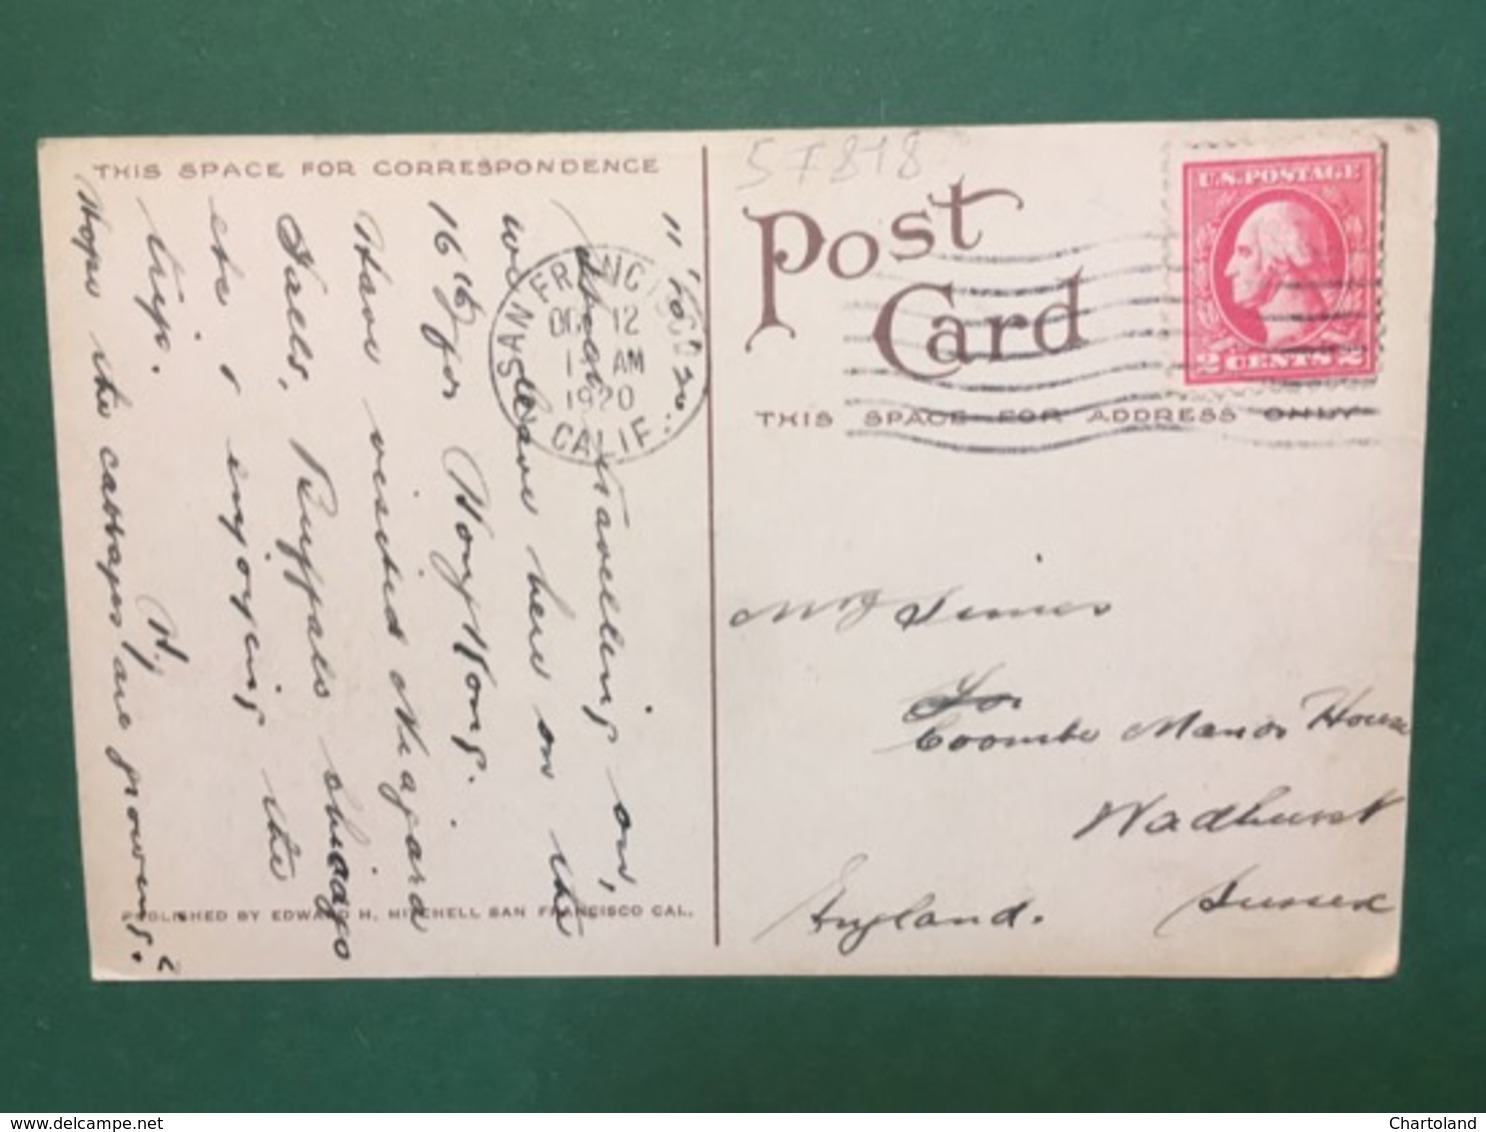 THIS SPACE FOR CORRESPONDENCE
11/10/20.
travelling on,
we leave here on the
16th for Hong Kong.
Have visited Niagara
Falls, Buffalo Chicago
etc. & enjoying the
trip.
H.
Hope the cabbages are growing.
PUBLISHED BY EDWARD H. MITCHELL SAN FRANCISCO CAL.
SAN FRANCISCO
12
1 AM
1920
CALIF.
Post
Card
THIS SPACE FOR ADDRESS ONLY
U.S. POSTAGE
2 CENTS 2
Coombe Manor House
Wadhurst
Sussex
England.
www.delcampe.net
Chartoland